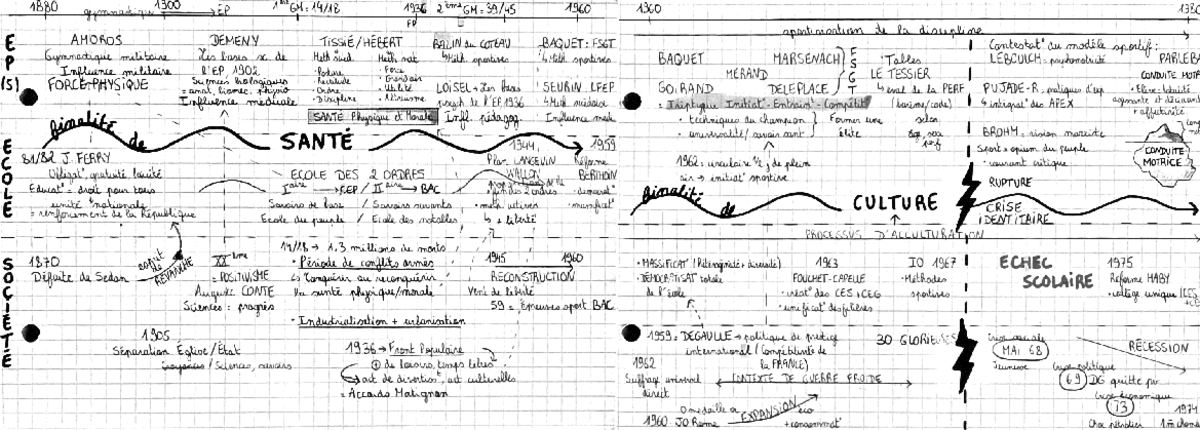 1880 1300 1ère GM = 14/18 1936 2ème GM = 39/45 1960
gymnastique → EP
FP
EP(S)
AMOROS
Gymnastique militaire
Influence militaire
FORCE PHYSIQUE
DEMENY
Les bases sc. de
l'EP, 1902
Sciences biologiques
= anat, biomec, physio
Influence médicale
TISSIÉ/HÉBERT
Meth Suéd Meth nat
Posture Force
Rectitude
Ordre Utilité
Discipline Altruisme
SANTÉ Physique et Morale
BALLIN du COTEAU
4 Meth. sportives
LOISEL = Les bases
Infl. pédagog.
BAQUET: FSGT
4 Meth. sportives
SEURIN, LFEP
Influence med
finalité de SANTÉ
1944, 1959
ECOLE
81/82 J. FERRY
Obligat°, gratuité, laïcité
Educat° = droit pour tous
unité nationale
= renforcement de la République
ECOLE DES 2 ORDRES
Iaire → CEP / IIaire → BAC
Savoirs de base / Savoirs savants
Ecole du peuple / Ecole des notables
Plan LANGEVIN
WALLON
+ liberté
Réforme
BERTHOIN
SOCIÉTÉ
1870
Défaite de Sedan
esprit de
REVANCHE
XXème
= POSITIVISME
Auguste COMTE
Sciences : progrès
14/18 → 1,3 millions de morts
• Période de conflits armés
santé physique/morale
• Industrialisation + urbanisation
1945 1960
RECONSTRUCTION
Vent de liberté
59 = Epreuves sport BAC
1905
Séparation Église/État
Croyances / Sciences, savoirs
1936 → Front Populaire
+ de loisirs, temps libre
act de divertion, act culturelles
= Accords Matignon
1960 1980
sportivisation de la discipline
BAQUET MARSENACH
MERAND
GOIRAND DELEPLACE
= Triptyque Initiat° - Entrain° - Compétit°
• techniques du champion
• universalité/savoir savant
Former une
élite
1962 : circulaire 1/2 j de plein
air → initiat° sportive
ESGT
: Tables
LE TESSIER
4 eval de la PERF
(barème/code)
Contestat° du modèle sportif :
LEBOULCH = psychomotricité
PUJADE-R, pratiques d'exp
4 intégrat° des APEX
BROHM = vision marxiste
Sport = opium du peuple
• courant critique
PARLEBAS
CONDUITE MOTRICE
+ affectivité
CONDUITE
MOTRICE
finalité de CULTURE
PROCESSUS D'ACCULTURATION
RUPTURE
CRISE
IDENTITAIRE
• MASSIFICAT° (Hétérogénéité + diversité)
• DÉMOCRATISAT° totale
de l'école
1963
FOUCHET-CAPELLE
• créat° des CES + CEG
• unificat° des filières
IO 1967
• Méthodes
sportives
ECHEC
SCOLAIRE
1975
Réforme HABY
• collège unique
1959 = DEGAULLE → politique de prestige
international (compétitivité de
la FRANCE)
1962
Suffrage universel
direct
CONTEXTE DE GUERRE FROIDE
30 GLORIEUSES
1960 JO Rome
0 médaille or
EXPANSION éco
+ consommat°
Crise sociale
MAI 68
Jeunesse
Crise politique
69 DG quitte pvr
Crise économique
73
Choc pétrolier
RÉCESSION
1974